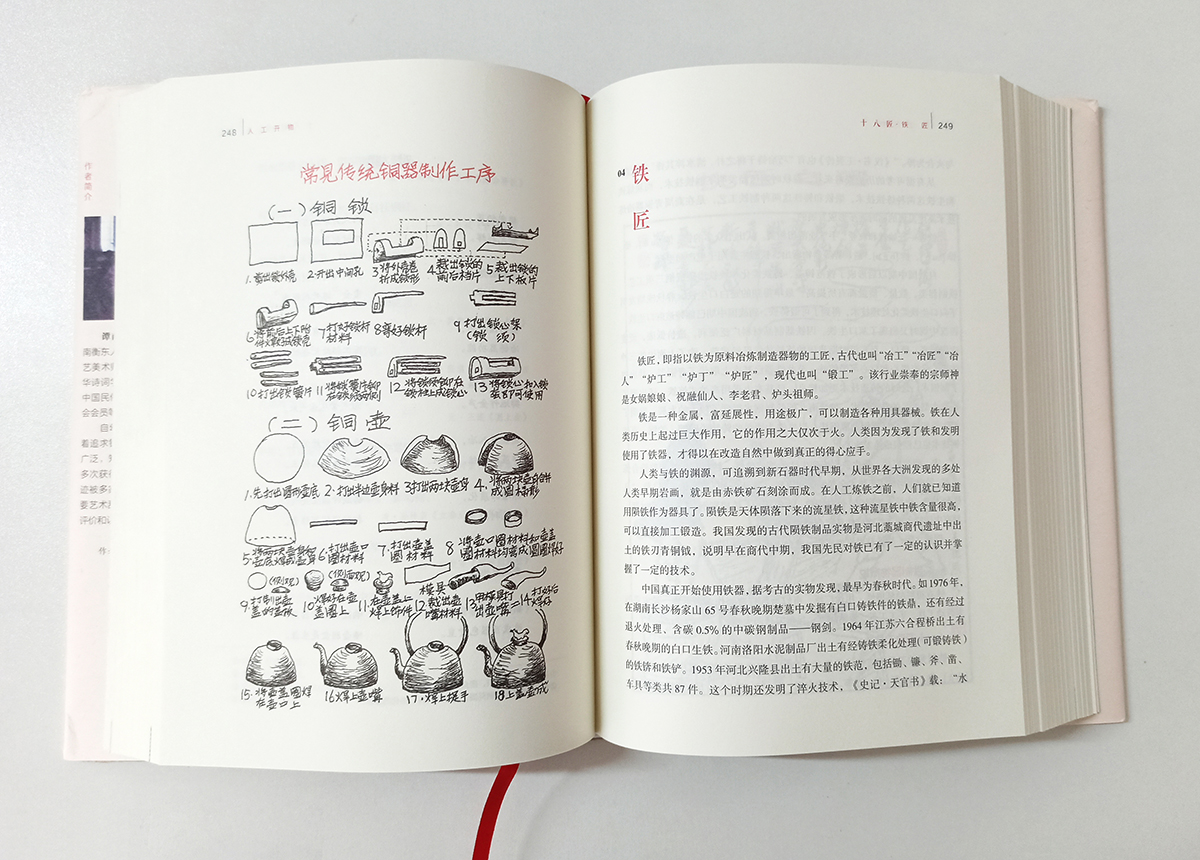 作者简介
谭
南衡东人
艺美术师
华诗词学
中国民俗
会会员等
自
着追求
广泛,
多次获
迹被多
要艺术
评价和
248 人工开物
常见传统铜器制作工序
(一)铜锁
1.裁出锁外壳
2.开出中间孔
3.将外壳卷折成锁形
4.裁出锁的前后档片
5.裁出锁的上下板片
6.将前后上下附件焊好成锁壳
7.打好锁杆材料
8.弯好锁杆
9.打出锁心架(锁须)
10.打出锁簧片
11.将锁簧片铆在锁须两侧
12.将锁须铆在锁栓上成锁心
13.将锁心扣入锁壳即可使用
(二)铜壶
1.先打出圆形壶底
2.打出半边壶身料
3.打出两块壶身
4.将两块壶身合并成圆梯形
5.将两块壶身和壶底焊成壶身
6.打出壶口圈材料
7.打出壶盖圈材料
8.将壶口圈材料和壶盖圈材料均弯成圆圈焊好
(俯观)
(侧面观)
模具
9.打制壶盖的盖板
10.焊好在壶盖圈上
11.在壶盖上焊上饰件
12.裁出壶嘴材料
13.用模具打出壶嘴
14.打好后焊好
15.将壶盖圈焊在壶口上
16.焊上壶嘴
17.焊上提手
18.上盖壶成
十八匠·铁 匠 249
04 铁
匠
铁匠,即指以铁为原料冶炼制造器物的工匠,古代也叫“冶工”“冶匠”“冶
人”“炉工”“炉丁”“炉匠”,现代也叫“锻工”。该行业崇奉的宗师神
是女娲娘娘、祝融仙人、李老君、炉头祖师。
铁是一种金属,富延展性,用途极广,可以制造各种用具器械。铁在人
类历史上起过巨大作用,它的作用之大仅次于火。人类因为发现了铁和发明
使用了铁器,才得以在改造自然中做到真正的得心应手。
人类与铁的渊源,可追溯到新石器时代早期,从世界各大洲发现的多处
人类早期岩画,就是由赤铁矿石刻涂而成。在人工炼铁之前,人们就已知道
用陨铁作为器具了。陨铁是天体陨落下来的流星铁,这种流星铁中铁含量很高,
可以直接加工锻造。我国发现的古代陨铁制品实物是河北藁城商代遗址中出
土的铁刃青铜钺,说明早在商代中期,我国先民对铁已有了一定的认识并掌
握了一定的技术。
中国真正开始使用铁器,据考古的实物发现,最早为春秋时代。如1976年,
在湖南长沙杨家山65号春秋晚期楚墓中发掘有白口铸铁件的铁鼎,还有经过
退火处理、含碳0.5%的中碳钢制品——钢剑。1964年江苏六合程桥出土有
春秋晚期的白口生铁。河南洛阳水泥制品厂出土有经铸铁柔化处理(可锻铸铁)
的铁锛和铁铲。1953年河北兴隆县出土有大量的铁范,包括锄、镰、斧、凿、
车具等类共87件。这个时期还发明了淬火技术,《史记·天官书》载:“水